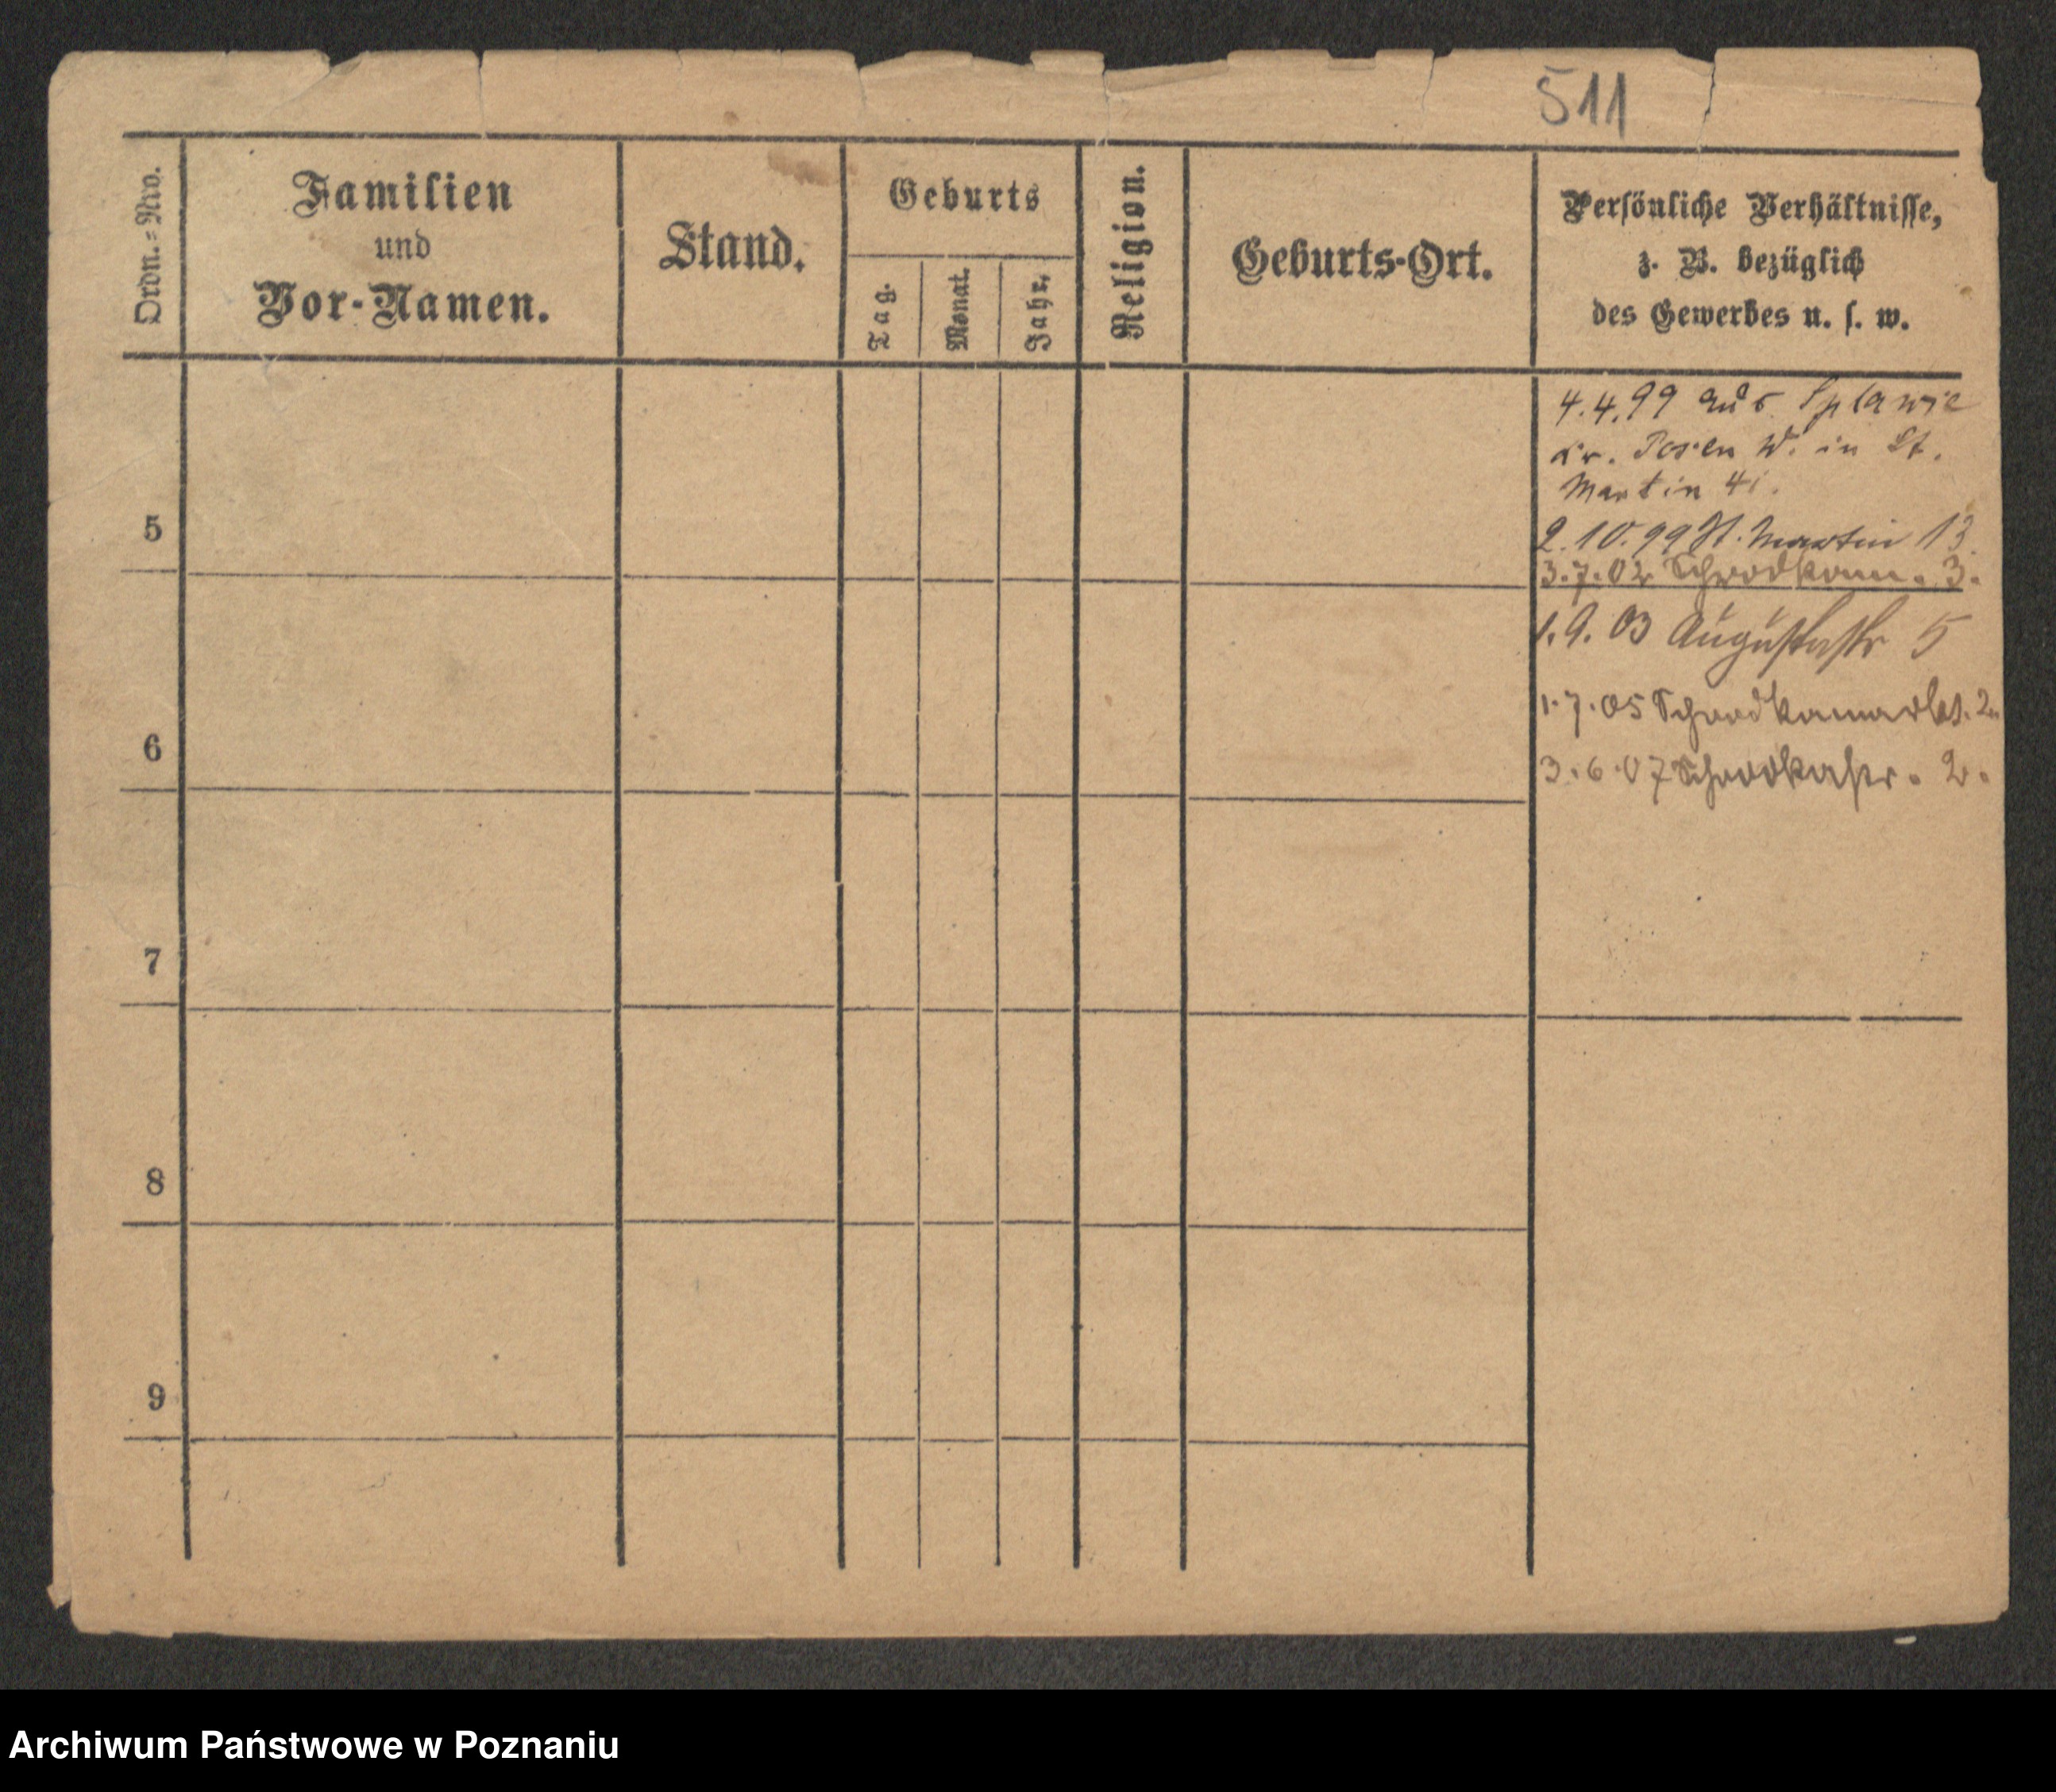 511
Ordn.-Nro.
Familien
und
Vor-Namen.
Stand.
Geburts
Tag.
Monat.
Jahr.
Religion.
Geburts-Ort.
Persönliche Verhältnisse,
z. B. bezüglich
des Gewerbes u. s. w.
4.4.99 aus Splawie
Kr. Posen W. in St.
Martin 41.
2.10.99 St. Martin 13.
3.7.02 3.
1.9.03 Augustastr 5
1.7.05 Schrodkamarkt. 2
3.6.07 Schrodkastr. 2.
5
6
7
8
9
Archiwum Państwowe w Poznaniu